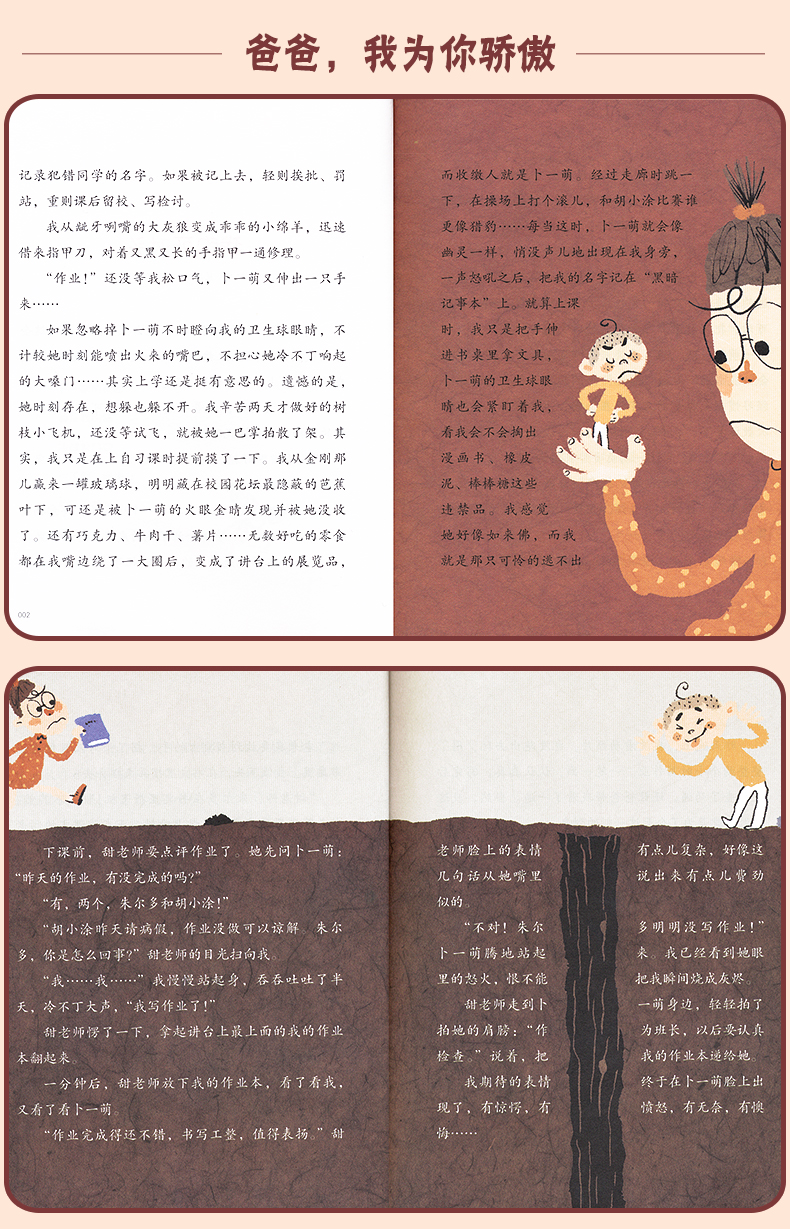 爸爸，我为你骄傲
记录犯错同学的名字。如果被记上去，轻则挨批、罚
站，重则课后留校、写检讨。
我从龇牙咧嘴的大灰狼变成乖乖的小绵羊，迅速
借来指甲刀，对着又黑又长的手指甲一通修理。
“作业！”还没等我松口气，卜一萌又伸出一只手
来……
如果忽略掉卜一萌不时瞪向我的卫生球眼睛，不
计较她时刻能喷出火来的嘴巴，不担心她冷不丁响起
的大嗓门……其实上学还是挺有意思的。遗憾的是，
她时刻存在，想躲也躲不开。我辛苦两天才做好的树
枝小飞机，还没等试飞，就被她一巴掌拍散了架。其
实，我只是在上自习课时提前摸了一下。我从金刚那
儿赢来一罐玻璃球，明明藏在校园花坛最隐蔽的芭蕉
叶下，可还是被卜一萌的火眼金睛发现并被她没收
了。还有巧克力、牛肉干、薯片……无数好吃的零食
都在我嘴边绕了一大圈后，变成了讲台上的展览品，
002
而收缴人就是卜一萌。经过走廊时跳一
下，在操场上打个滚儿，和胡小涂比赛谁
更像猎豹……每当这时，卜一萌就会像
幽灵一样，悄没声儿地出现在我身旁，
一声怒吼之后，把我的名字记在“黑暗
记事本”上。就算上课
时，我只是把手伸
进书桌里拿文具，
卜一萌的卫生球眼
睛也会紧盯着我，
看我会不会掏出
漫画书、橡皮
泥、棒棒糖这些
违禁品。我感觉
她好像如来佛，而我
就是那只可怜的逃不出
下课前，甜老师要点评作业了。她先问卜一萌：
“昨天的作业，有没完成的吗？”
“有，两个，朱尔多和胡小涂！”
“胡小涂昨天请病假，作业没做可以谅解。朱尔
多，你是怎么回事？”甜老师的目光扫向我。
“我……我……”我慢慢站起身，吞吞吐吐了半
天，冷不丁大声，“我写作业了！”
甜老师愣了一下，拿起讲台上最上面的我的作业
本翻起来。
一分钟后，甜老师放下我的作业本，看了看我，
又看了看卜一萌。
“作业完成得还不错，书写工整，值得表扬。”甜
老师脸上的表情有点儿复杂，好像这
几句话从她嘴里说出来有点儿费劲
似的。
“不对！朱尔多明明没写作业！”
卜一萌腾地站起来。我已经看到她眼
里的怒火，恨不能把我瞬间烧成灰烬。
甜老师走到卜一萌身边，轻轻拍了
拍她的肩膀：“作为班长，以后要认真
检查。”说着，把我的作业本递给她。
我期待的表情终于在卜一萌脸上出
现了，有惊愕，有愤怒，有无奈，有懊
悔……